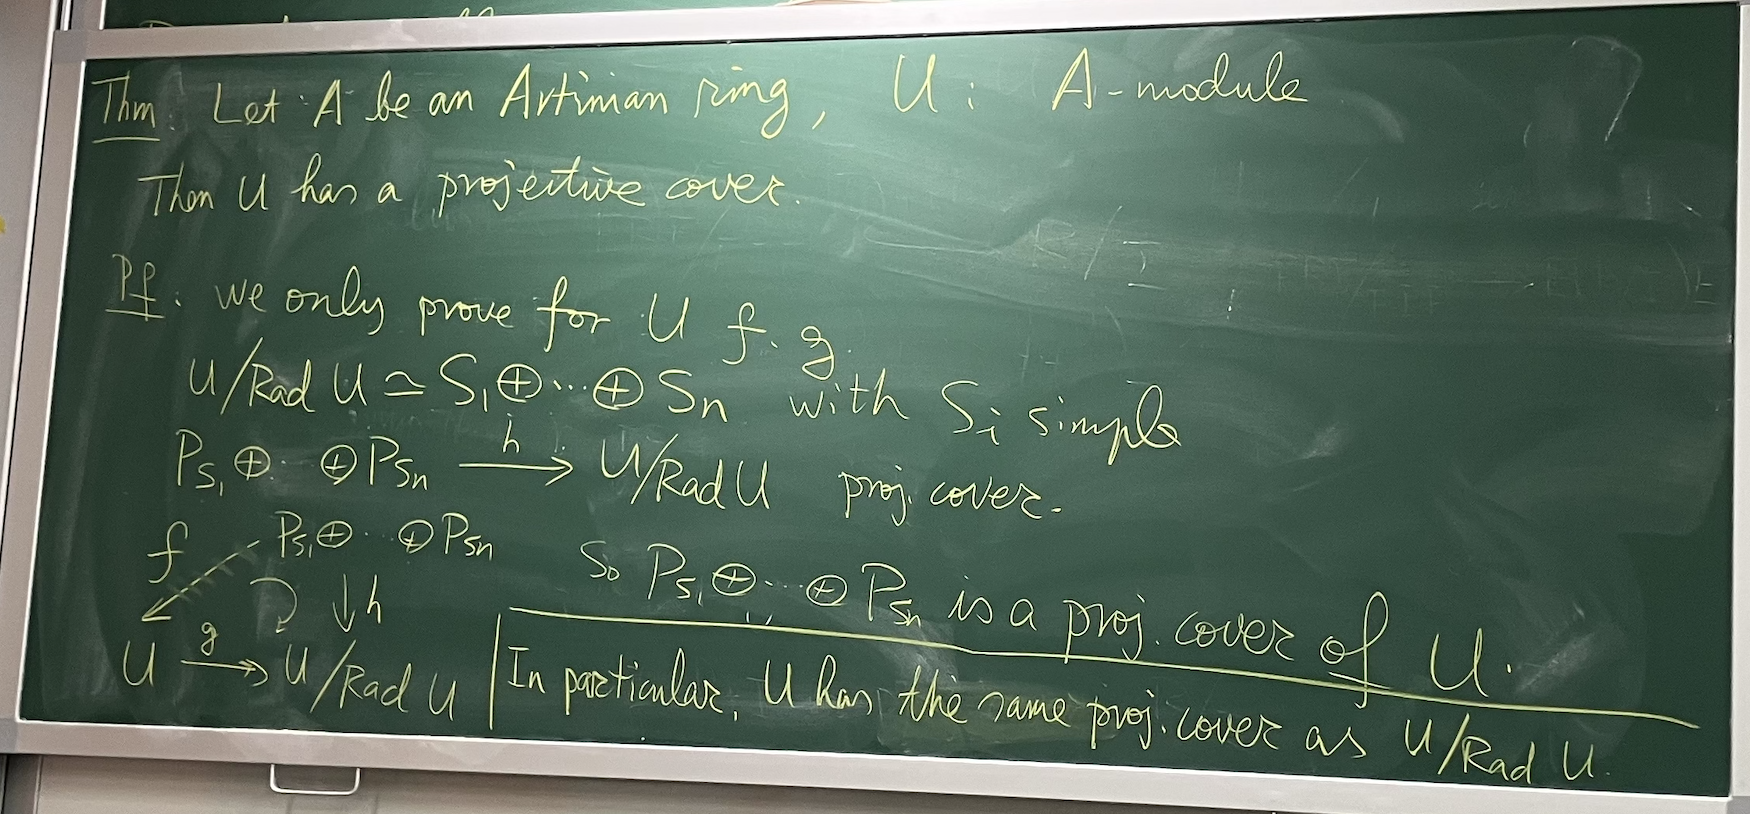 Thm. Let A be an Artinian ring, U : A-module
Then U has a projective cover.
Pf. we only prove for U f.g.
U/Rad U ≃ S₁⊕···⊕Sₙ with Sᵢ simple
P_{S₁}⊕··⊕P_{Sₙ} —h→ U/Rad U proj. cover.
f P_{S₁}⊕··⊕P_{Sₙ}
So P_{S₁}⊕···⊕P_{Sₙ} is a proj. cover of U.
↓h
U —g↠ U/Rad U
In particular, U has the same proj. cover as U/Rad U.